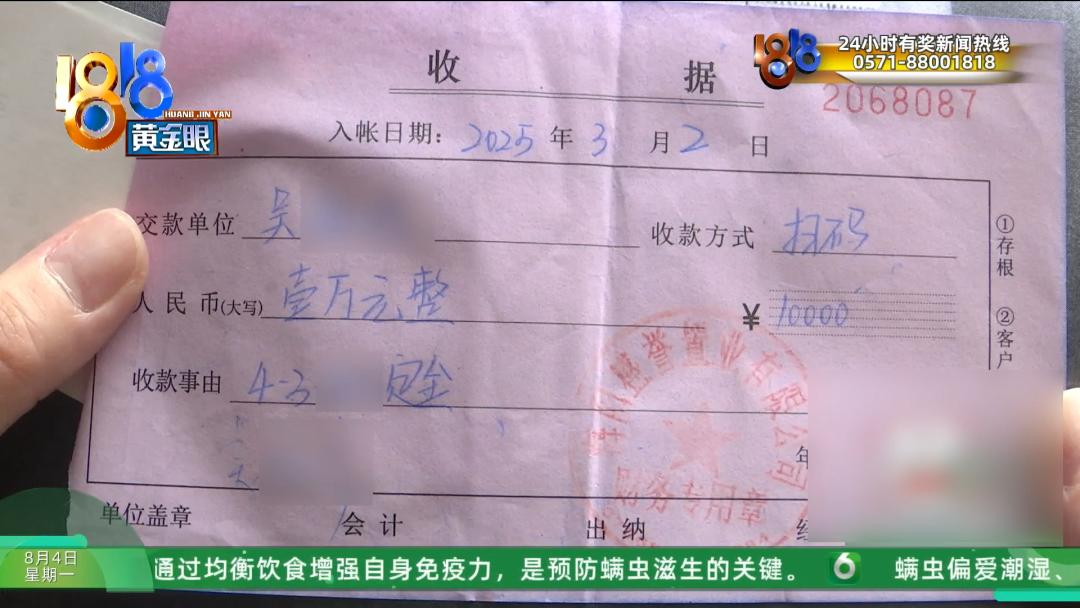 1818
HUANG JIN YAN
黄金眼
1818
24小时有奖新闻热线
0571-88001818
收 据
2068087
入帐日期: 2025 年 3 月 2 日
交款单位 吴 收款方式 扫码
人民币(大写) 壹万元整 ¥ 10000
收款事由 4-3 定金
①存根 ②客户
誉置业有限公司
财务专用章
年
单位盖章 会计 出纳
8月4日
星期一
通过均衡饮食增强自身免疫力，是预防螨虫滋生的关键。 6 螨虫偏爱潮湿、